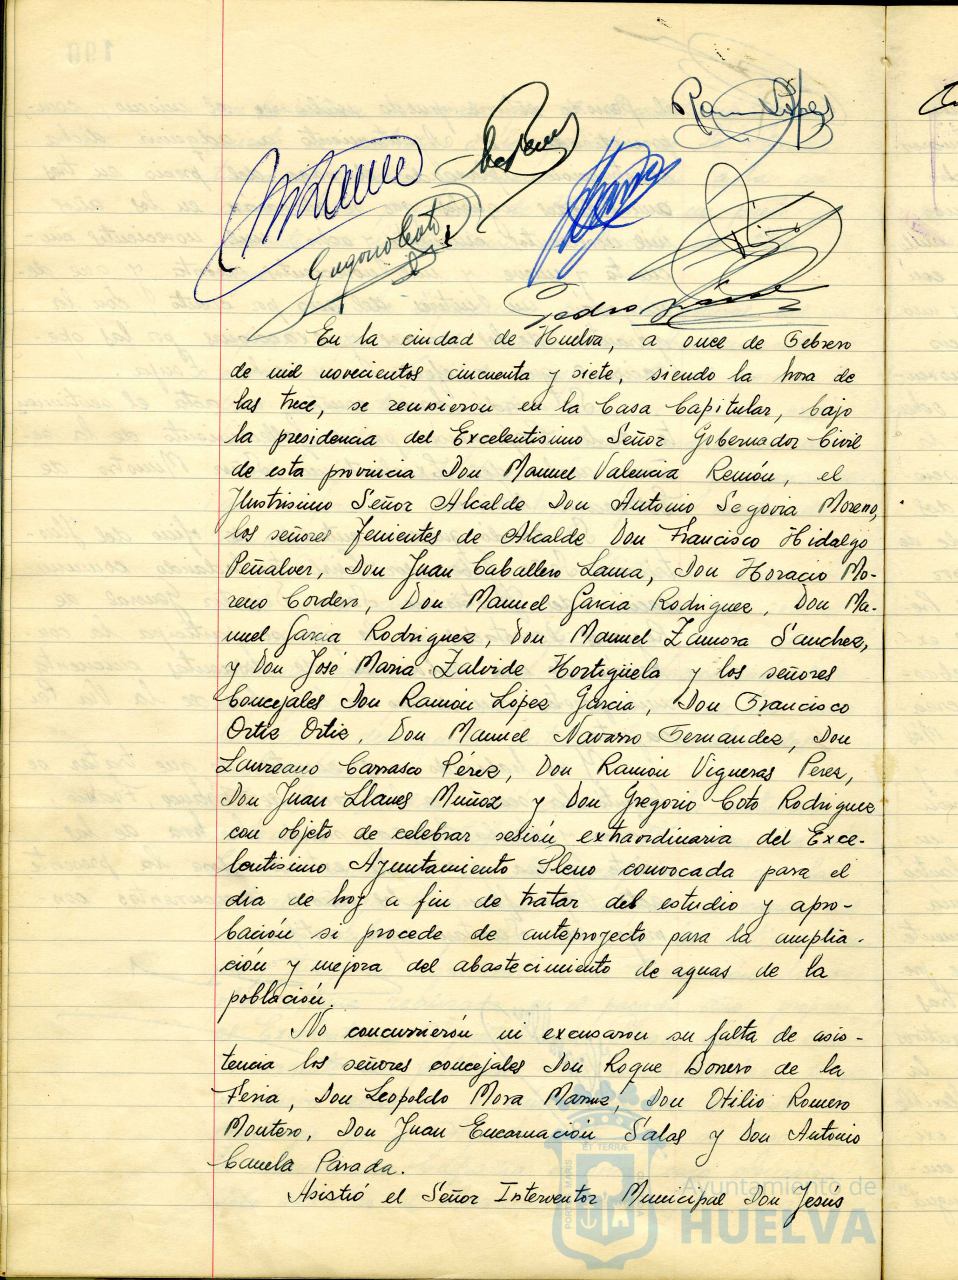 Ramón López
Gregorio Coto
Pedro
En la ciudad de Huelva, a once de Febrero
de mil novecientos cincuenta y siete, siendo la hora de
las trece, se reunieron en la Casa Capitular, bajo
la presidencia del Excelentisimo Señor Gobernador Civil
de esta provincia Don Manuel Valencia Remón, el
Ilustrisimo Señor Alcalde Don Antonio Segovia Moreno,
los señores Tenientes de Alcalde Don Francisco Hidalgo
Peñalver, Don Juan Caballero Lama, Don Horacio Mo-
reno Cordero, Don Manuel Garcia Rodriguez, Don Ma-
nuel Garcia Rodriguez, Don Manuel Zamora Sanchez,
y Don José Maria Zalvide Hortigüela y los señores
Concejales Don Ramón López Garcia, Don Francisco
Ortiz Ortiz, Don Manuel Navarro Fernandez, Don
Laureano Carrasco Pérez, Don Ramón Vigueras Perez,
Don Juan Llanes Muñoz y Don Gregorio Coto Rodriguez
con objeto de celebrar sesión extraordinaria del Exce-
lentisimo Ayuntamiento Pleno convocada para el
dia de hoy a fin de tratar del estudio y apro-
bación si procede de anteproyecto para la amplia-
ción y mejora del abastecimiento de aguas de la
población.
No concurrierón ni excusaron su falta de asis-
tencia los señores concejales Don Roque Bonero de la
Feria, Don Leopoldo Mora Don Otilio Romero
Montero, Don Juan Encarnación Salas y Don Antonio
Canela Parada.
Asistió el Señor Interventor Municipal Don Jesús
Ayuntamiento de
HUELVA